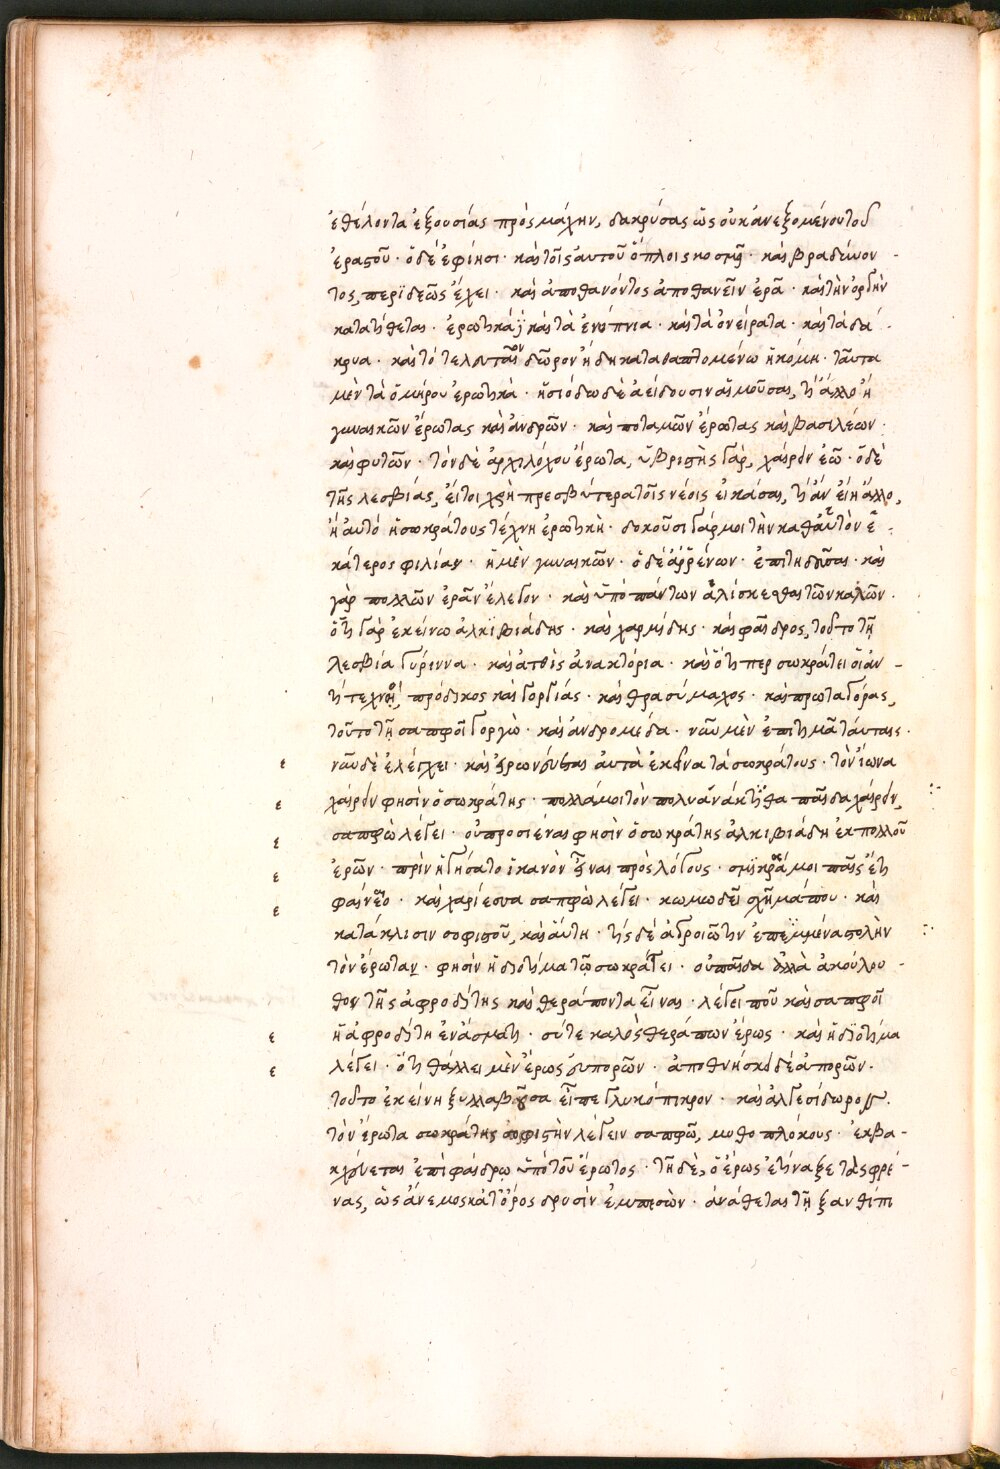 ἐθέλοντα ἐξουσίας πρὸς μάχην, δακρύσας ὡς οὐκ ἀνεξομένου τοῦ
ἐραστοῦ · ὁ δὲ ἐφίησι · καὶ τοῖς αὑτοῦ ὅπλοις κοσμεῖ · καὶ βραδύνον-
τος, περιδεῶς ἔχει · καὶ ἀποθανόντος ἀποθανεῖν ἐρᾶ · καὶ τὴν ὀργὴν
κατατίθεται · ἐρωτικὰ καὶ τὰ ἐνύπνια · καὶ τὰ ὀνείρατα · καὶ τὰ δά-
κρυα · καὶ τὸ τελευταῖον δῶρον ἤδη καταθαπτομένω ἡ κόμη · ταῦτα
μὲν τὰ ὁμήρου ἐρωτικὰ · ἡσιόδω δὲ ἀείδουσιν αἱ μοῦσαι, τί ἄλλο ἢ
γυναικῶν ἔρωτας καὶ ἀνδρῶν · καὶ ποταμῶν ἔρωτας καὶ βασιλέων ·
καὶ φυτῶν · τὸν δὲ ἀρχιλόχου ἔρωτα, ὑβριστὴς γὰρ, χαίρειν ἐῶ · ὁ δὲ
τῆς λεσβίας, εἴ τοι χρὴ πρεσβύτερα τοῖς νέοις εἰκάσαι, τί ἂν εἴη ἄλλο,
ἢ αὐτό ἡ σωκράτους τέχνη ἐρωτικὴ · δοκοῦσι γάρ μοι τὴν καθ᾽ αὑτὸν ἑ-
κάτερος φιλίαν · ἡ μὲν γυναικῶν · ὁ δὲ ἀῤῥένων · ἐπιτηδεῦσαι · καὶ
γὰρ πολλῶν ἐρᾶν ἔλεγον · καὶ ὑπὸ πάντων ἁλίσκεσθαι τῶν καλῶν ·
ὅ τι γὰρ ἐκείνω ἀλκϊβιάδης · καὶ χαρμίδης · καὶ φαῖδρος, τοῦτο τῇ
λεσβία γύριννα · καὶ ἀτθὶς ἀνακτόρια · καὶ ὅ τι περ σωκράτει οἱ ἀν-
τίτεχνοι, πρόδικος καὶ γοργίας · καὶ θρασύμαχος · καὶ πρωταγόρας,
τοῦτο τῇ σαπφοῖ γοργὼ · καὶ ἀνδρομέδα · νῦν μὲν ἐπιτιμᾶ ταύταις ·
νῦν δὲ ἐλέγχει · καὶ εἰρωνεύεται αὐτὰ ἐκεῖνα τὰ σωκράτους · τὸν ἴωνα
χαίρειν φησὶν ὁ σωκράτης · πολλά μοι τὸν πολυανάκτιδα παῖδα χαίρειν,
σαπφὼ λέγει · οὐ προσιέναι φησὶν ὁ σωκράτης ἀλκιβιάδη ἐκ πολλοῦ
ἐρῶν · πρὶν ἡγήσατο ἱκανὸν εἶναι πρὸς λόγους · σμικρά μοι παῖς ἔτι
φαίνεο · καὶ χαρίεσσα σαπφὼ λέγει · κωμωδεῖ σχῆμά που · καὶ
κατάκλισιν σοφιστοῦ, καὶ αὕτη · τίς δὲ ἀγροιῶτιν ἐπεμμένα στολὴν
τὸν ἔρωταν · φησὶν ἡ διοτίμα τῷ σωκράτει · οὐ παῖδα ἀλλὰ ἀκόλου-
θον τῆς ἀφροδίτης καὶ θεράποντα εἶναι · λέγει που καὶ σαπφοῖ
ἡ ἀφροδίτη ἐν ἄσματι · σύ τε καλὸς θεράπων ἔρως · καὶ ἡ διοτίμα
λέγει · ὅτι θάλλει μὲν ἔρως εὐπορῶν · ἀποθνήσκει δὲ ἀπορῶν ·
τοῦτο ἐκείνη ξυλλαβοῦσα εἶπε γλυκόπικρον · καὶ ἀλγεσίδωρον ·
τὸν ἔρωτα σωκράτης σοφιστὴν λέγει σαπφῶ, μυθοπλόκους · ἐκβα-
κχεύεται ἐπὶ φαίδρῳ ὑπὸ τοῦ ἔρωτος · τῇ δὲ, ὁ ἔρως ἐτίναξε τὰς φρέ-
νας, ὡς ἄνεμος κατ᾽ ὄρος δρυσὶν ἐμπεσὼν · ἀνάθεται τῇ ξανθίπ